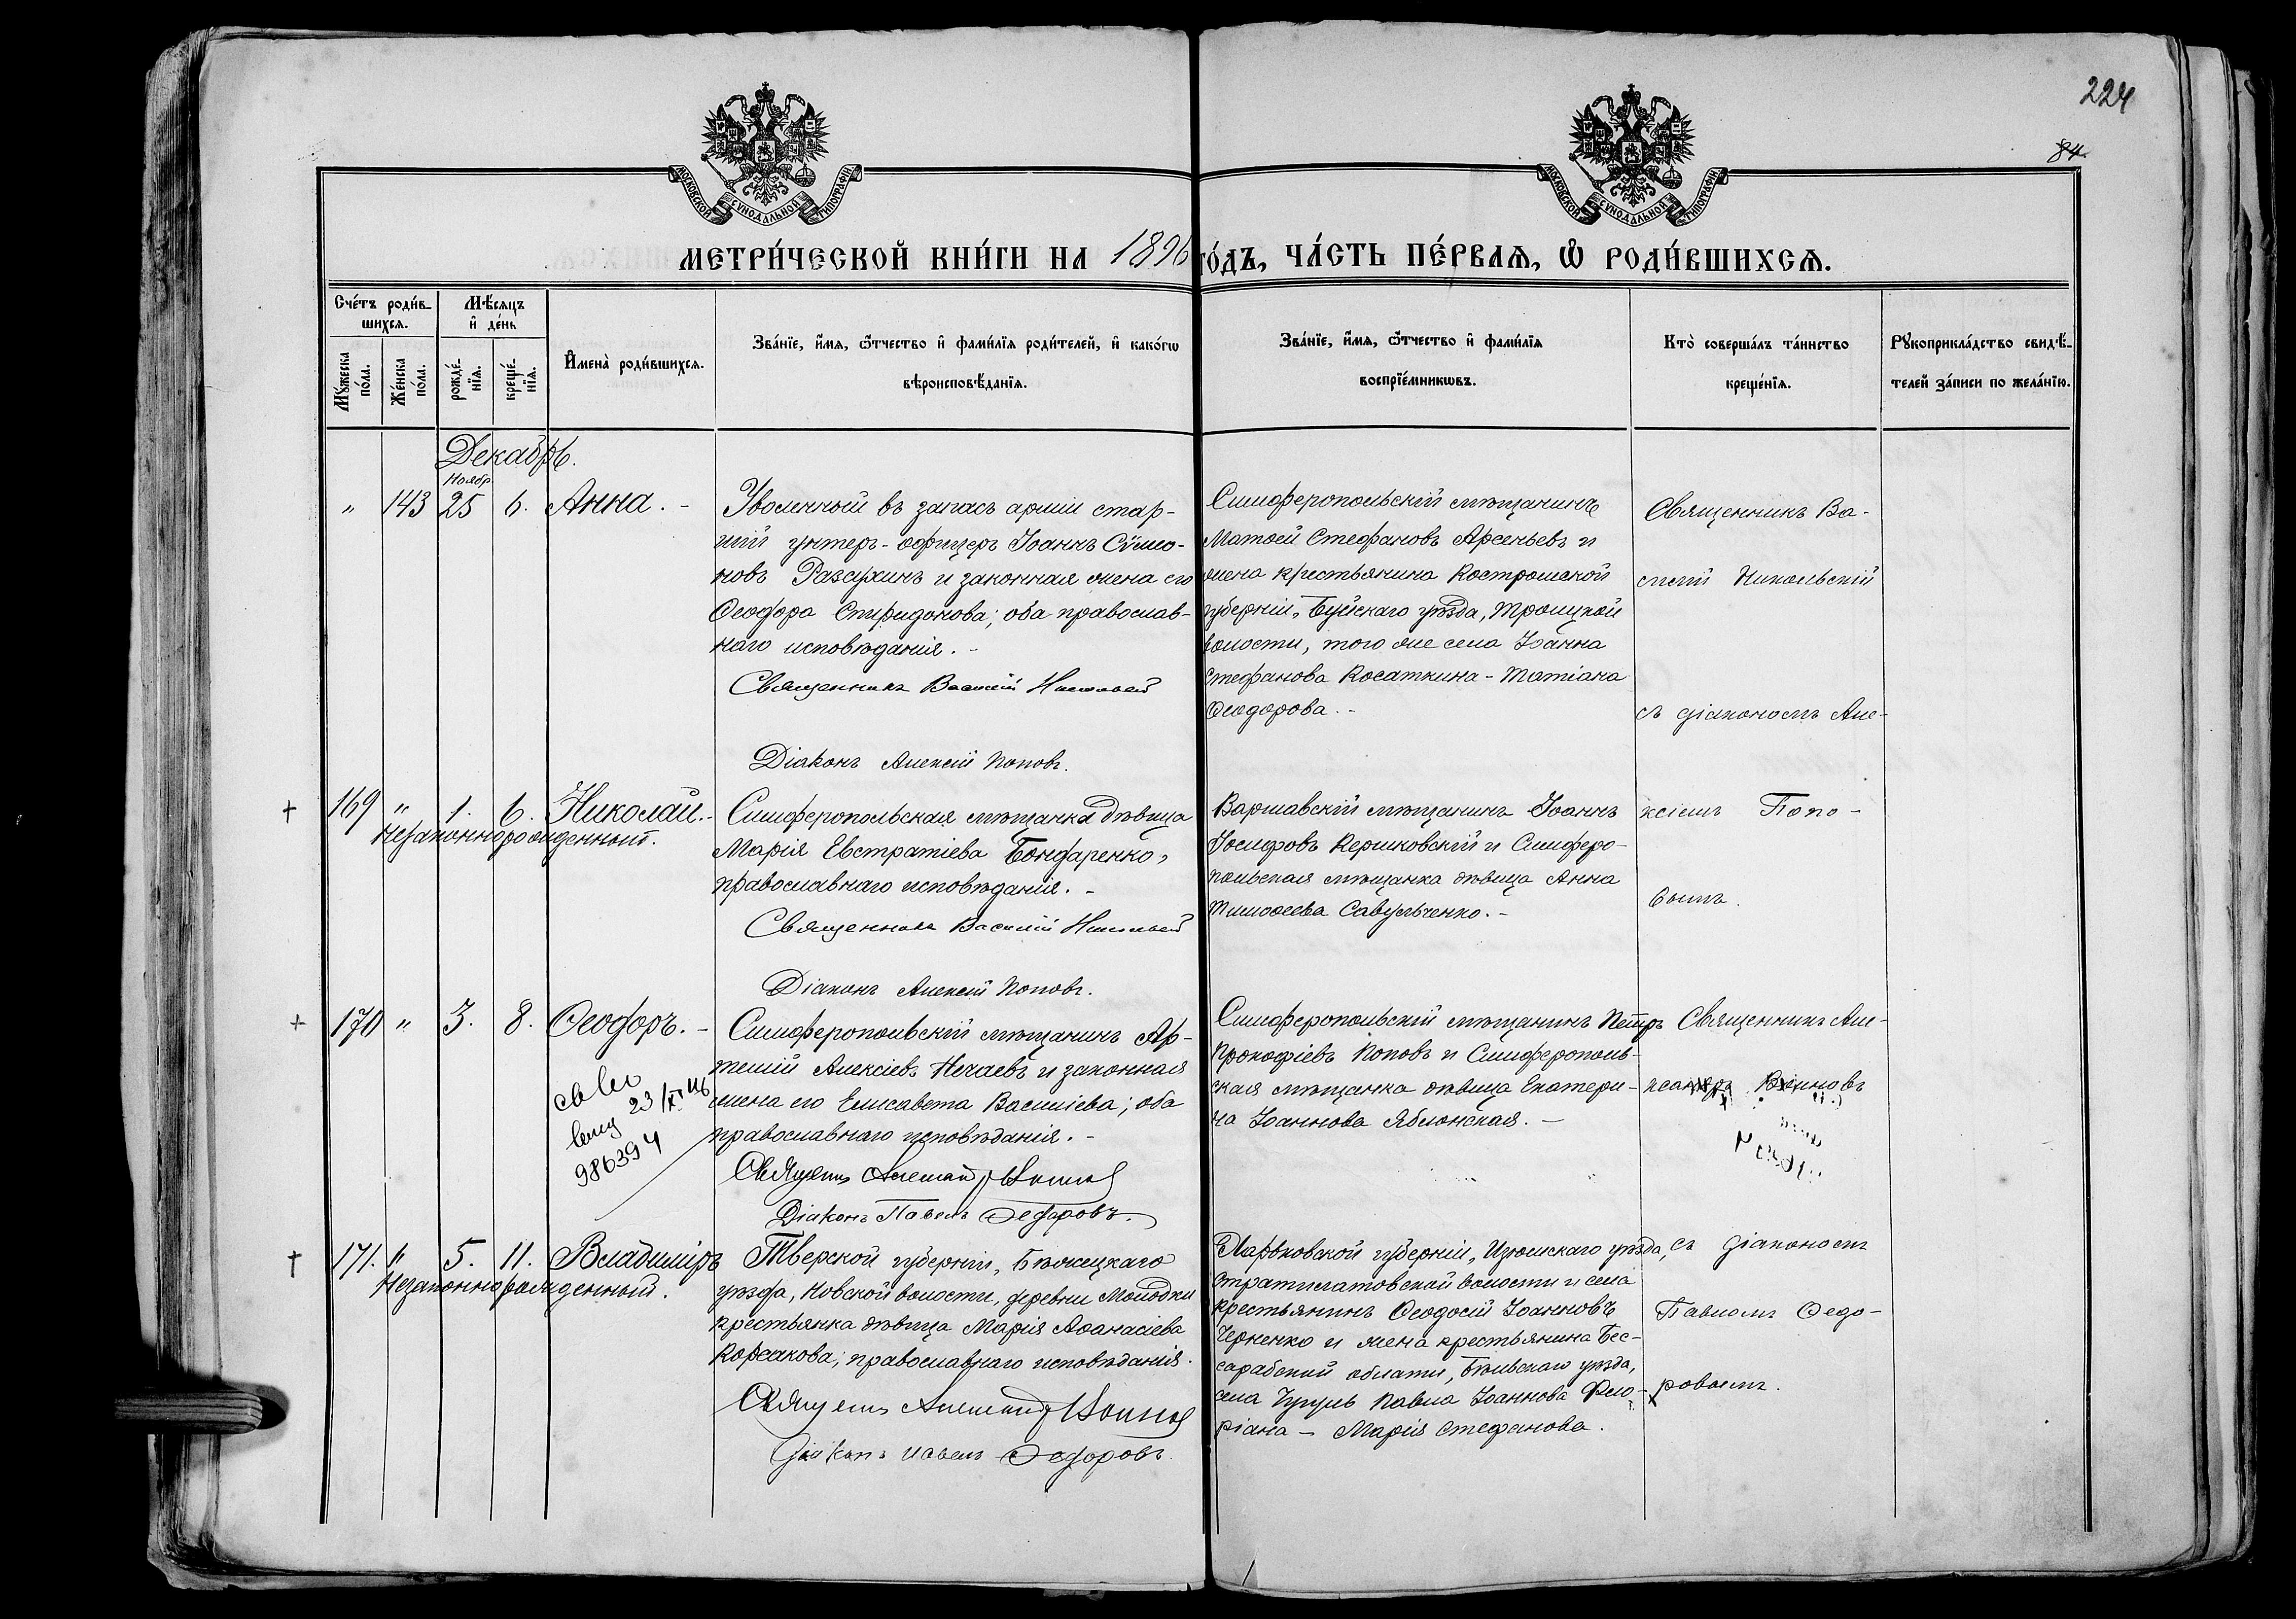 224
84.
МОСКОВСКОЙ СУНОДАЛЬНОЙ ТИПОГРАФІИ
МОСКОВСКОЙ СУНОДАЛЬНОЙ ТИПОГРАФІИ
МЕТРИ́ЧЕСКОЙ КНИ́ГИ НА 1896 ГО́ДЪ, ЧА́СТЬ ПЕ́РВАѦ, Ѽ РОДИ́ВШИХСѦ.
Сче́тъ роди́в-
шихсѧ.
Мꙋ́жеска по́ла.
Же́нска по́ла.
Мѣ́сѧцъ
и҆ де́нь
рожде́-
нїѧ.
креще́-
нїѧ.
И҆мена̀ роди́вшихсѧ.
Зва́нїе, и҆́мѧ, ѻ҆́тчество и҆ фами́лїѧ роди́телей, и҆ како́гѡ
вѣроисповѣ́данїѧ.
Зва́нїе, и҆́мѧ, ѻ҆́тчество и҆ фами́лїѧ
воспрїе́мникѡвъ.
Кто̀ соверша́лъ та́инство
креще́нїѧ.
Рꙋкоприкла́дство свидѣ́-
телей за́писи по жела́нїю.
Декабрь.
Ноябр.
" 143 25 6. Анна. -
Уволенный въ запасъ арміи стар-
шій унтеръ-офицеръ Іоаннъ Сѵмео-
новъ Разсухинъ и законная жена его
Ѳеодора Спиридонова; оба православ-
наго исповѣданія. -
Священникъ Василій Никольскій
Діаконъ Алексій Поповъ.
Симферопольскій мѣщанинъ
Матѳей Стефановъ Арсеньевъ и
жена крестьянина Костромской
губерніи, Буйскаго уѣзда, Троицкой
волости, того же села Іоанна
Стефанова Косаткина - Татіана
Ѳеодорова. -
Священникъ Ва-
силій Никольскій
съ діакономъ Але-
ксіемъ Попо-
вымъ.
+ 169 " 1. 6. Николай. -
Незаконнорожденный.
Симферопольская мѣщанка дѣвица
Марія Евстратіева Бондаренко,
православнаго исповѣданія. -
Священникъ Василій Никольскій
Діаконъ Алексій Поповъ.
Варшавскій мѣщанинъ Іоаннъ
Іосифовъ Кершковскій и Симферо-
польская мѣщанка дѣвица Анна
Тимоѳеева Савульченко. -
+ 170 " 3. 8. Ѳеодоръ. -
23/XI
986394
Симферопольскій мѣщанинъ Ар-
темій Алексіевъ Нечаевъ и законная
жена его Елисавета Василіева; оба
православнаго исповѣданія. -
Діаконъ Павелъ Ѳедоровъ.
Симферопольскій мѣщанинъ Петръ
Прокофіевъ Поповъ и Симферополь-
ская мѣщанка дѣвица Екатери-
на Іоаннова Яблонская. -
Священникъ Але-
ксандръ
съ діакономъ
Павломъ Ѳедо-
ровымъ.
+ 171. " 5. 11. Владиміръ
Незаконнорожденный.
Тверской губерніи, Бѣжецкаго
уѣзда, Новской волости, деревни Молодки
крестьянка дѣвица Марія Аѳанасіева
Корсакова; православнаго исповѣданія.
Діаконъ Павелъ Ѳедоровъ.
Харьковской губерніи, Изюмскаго уѣзда,
Стратилатовской волости и села
крестьянинъ Ѳеодосій Іоанновъ
Черненко и жена крестьянина Бес-
сарабской области, Бѣльскаго уѣзда,
села Чугуль Павла Іоаннова Фло-
ріана - Марія Стефанова.